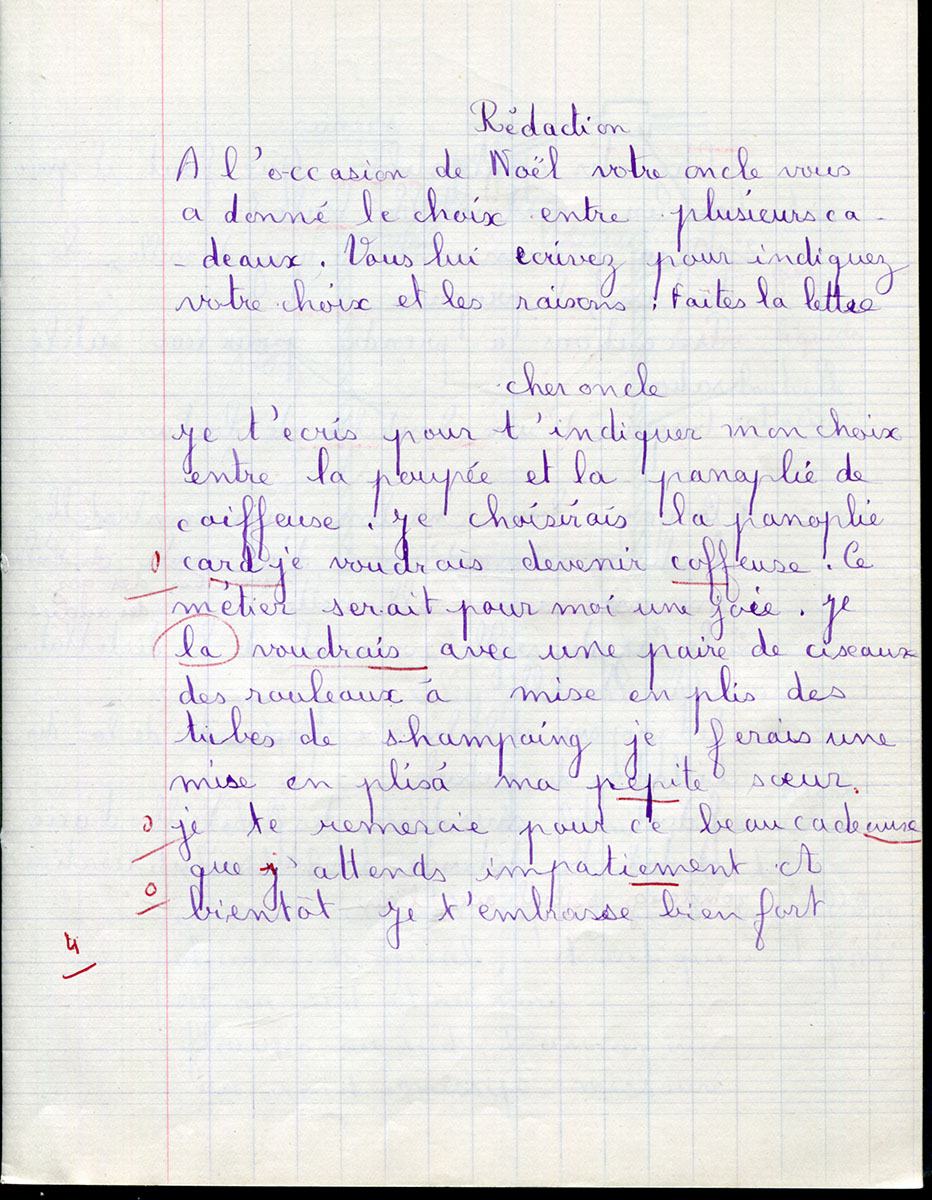 Rédaction
A l'occasion de Noël votre oncle vous
a donné le choix entre plusieurs ca-
-deaux. Vous lui ecrivez pour indiquez
votre choix et les raisons. Faites la lettre
cher oncle
je t'écris pour t'indiquer mon choix
entre la poupée et la panoplie de
coiffeuse. je choisirais la panoplie
0 card je voudrais devenir coffeuse. Ce
métier serait pour moi une joie. je
la voudrais avec une paire de ciseaux
des rouleaux à mise en plis des
tubes de shampoing je ferais une
mise en plis á ma pepite sœur.
0 je te remercie pour ce beau cadeause
que j'attends impatiement A
0 bientôt je t'embrasse bien fort
4